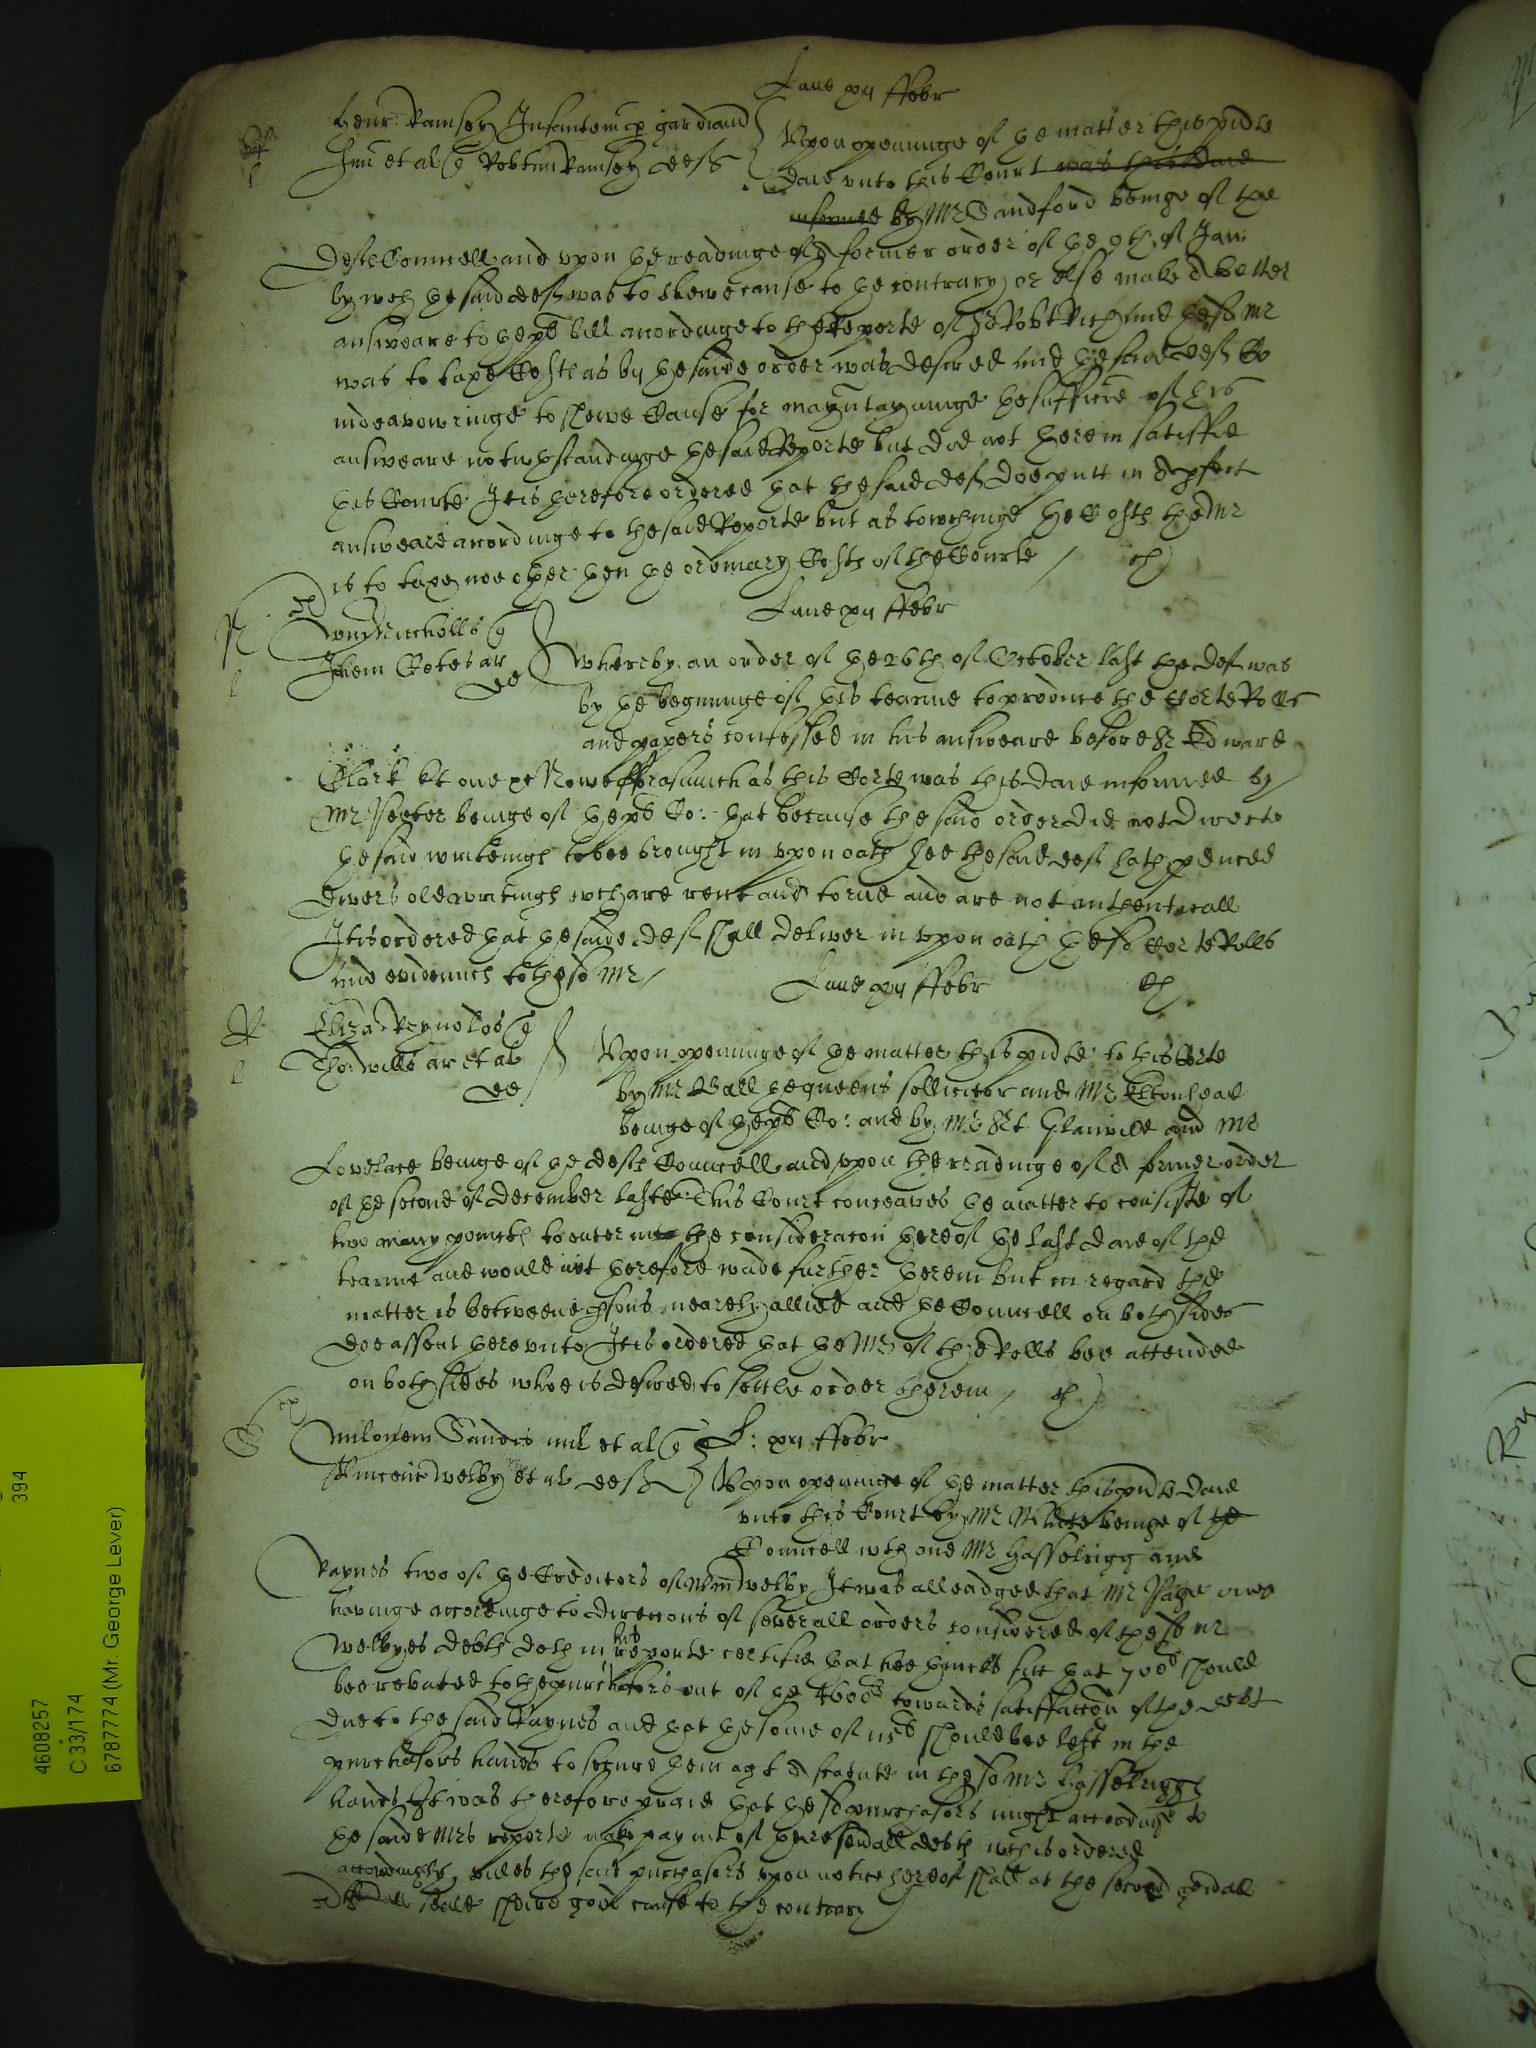 Lune xii ffebr
R
l
Henr: Ramsey Infantem p gardianu
suu et al q Robtum Ramsey deft
Upon openinge of the matter this pnte
daie unto this Court was this daie
informed by Mr Sandford beinge of the
Deftes Councell and upon the readinge of a former order of the 9th of Jan
by wch the said deft was to shewe cause to the contrary or else make a better
answeare to the plts bill accordinge to the Reporte of Sr Robt Rich and the sd Mr
was to taxe Costes as by the saide order was desired And the said deftes Co
indeavouringe to shewe Cause for mayntayninge the sufficie of his
answeare notwthstandinge the said Reporte but did not therein satisfie
this Courte It is therefore ordered that the said deft doe putt in a pfect
answeare accordinge to the said Reporte but as towchinge the Costes the Mr
is to taxe noe other then the ordinary Costes of the Courte /
Lune xii ffebr
N
l
Nicholls q
ar
de
Whereby an order of the 26th of October last the deft was
by the beginninge of this tearme to produce the Corte Rolls
and papers confessed in his answeare before Sr Edward
Clark kt one xc Nowe fforasmuch as this Corte was this daie informed by
Mr beinge of the plts Co: that because the said order did not directe
the said writeinges to bee brought in upon oath hee the said deft hath pduced
divers old writinges wch are rent and torne and are not autenticall
It is ordered that the saide deft shall deliver in upon oath the sd Corte Rolls
and evidences to the sd Mr /
Lune xii ffebr
R
l
Eliza Reynolds q
Tho: Wills ar et al
de
Upon openinge of the matter this pnte to this Corte
by Mr Wall the queens sollicitor and Mr Eltonhead
beinge of the plts Co: and by Mr Srt Glanvile and Mr
Lovelace beinge of the deftes Councell and upon the readinge of a former order
of the second of December laste This Court conceaves the matter to consiste of
two many pointes to enter into the consideracon thereof the last daie of the
tearme and would not therefore wade further therein but in regard the
matter is betweene psons nearely allied and the Councell on both sides
doe assent thereunto It is ordered that the Mr of the Rolls bee attended
on both sides whoe is desired to settle order therein /
S
Milonem Sandes mil et al q
Vincent Welby et al deftes
L: xii ffebr
Upon openinge of the matter this pnte daie
unto this Court by Mr beinge of the
Councell wth one Mr Hasselrigg and
Raynes two of the Creditors of Welby It was alleadged that Mr Page one
havinge accordinge to direccons of severall orders considered of the sd Mr
Welbyes debtes doth in his reporte certifie that hee thinckes fitt that 700l should
bee rebated to the purchasors out of the 4600l towards satisfaccon of the debt
due to the said Raynes and that the some of 115l should bee left in the
purchasors handes to secure them agt a statute in the sd Mr Hasselriggs
handes It was therefore praied that the sd purchasors might accordinge to
the saide Mrs reporte make paymt of the severall debtes wch is ordered
accordingly unles the said purchasors upon notice hereof shall at the second genall
seale shewe good cause to the contrary
4608257
C 33/174
6787774 (Mr. George Lever)
394